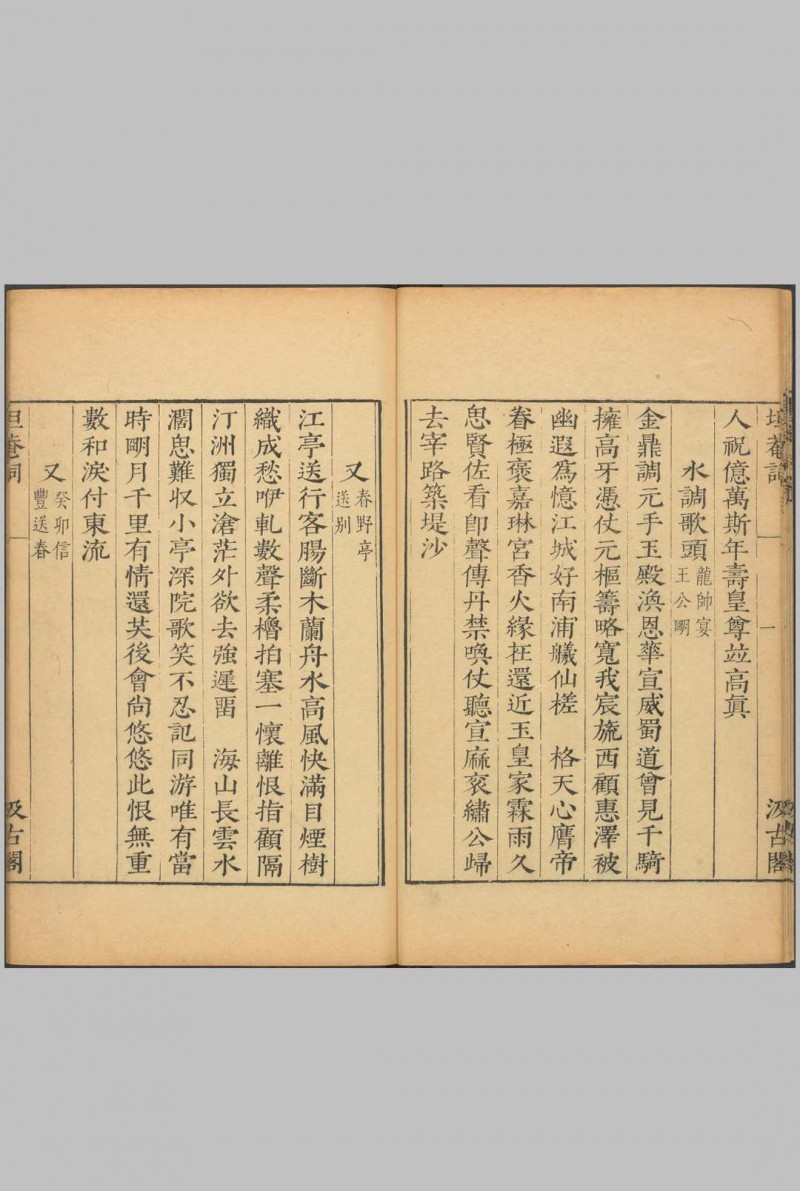 坦菴詞
一
汲古閣
人祝億萬斯年壽皇尊竝高眞
水調歌頭龍帥宴王公明
金鼎調元手玉殿渙恩華宣威蜀道曾見千騎
擁高牙憑仗元樞籌略寬我宸旒西顧惠澤被
幽遐爲憶江城好南浦艤仙槎　格天心膺帝
眷極褒嘉琳宮香火緣在還近玉皇家霖雨久
思賢佐看卽聲傳丹禁喚仗聽宣麻衮繡公歸
去宰路築堤沙
又春野亭送别
江亭送行客腸斷木蘭舟水高風快滿目煙樹
織成愁咿軋數聲柔櫓拍塞一懷離恨指顧隔
汀洲獨立滄茫外欲去強遲畱　海山長雲水
濶思難収小亭深院歌笑不忍記同游唯有當
時朙月千里有情還共後會尙悠悠此恨無重
數和淚付東流
又癸卯信豐送春
坦菴詞
汲古閣